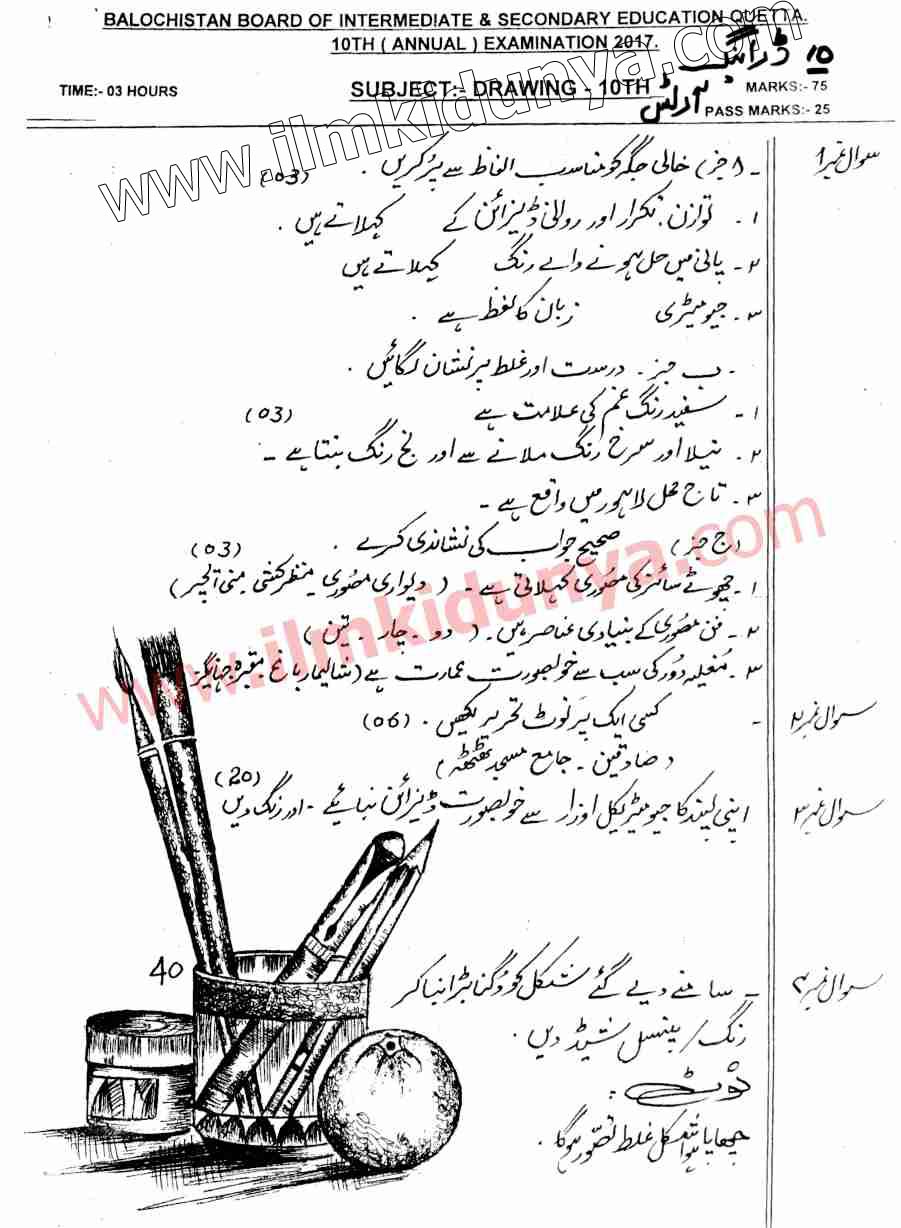 BALOCHISTAN BOARD OF INTERMEDIATE & SECONDARY EDUCATION QUETTA.
10TH ( ANNUAL ) EXAMINATION 2017.
10 ڈرائنگ
TIME:- 03 HOURS
SUBJECT:- DRAWING - 10TH
آرٹس
MARKS:- 75
PASS MARKS:- 25
www.ilmkidunya.com
سوال نمبر 1
- (ا جز) خالی جگہ کو مناسب الفاظ سے پُر کریں . (03)
۱ - توازن . تکرار اور روانی ڈیزائن کے کہلاتے ہیں .
۲ - پانی میں حل ہونے والے رنگ کہلاتے ہیں
۳ - جیومیٹری زبان کا لفظ ہے .
- ب جز - درست اور غلط پر نشان لگائیں .
۱ - سفید رنگ غم کی علامت ہے (03)
۲ - نیلا اور سرخ رنگ ملانے سے اورنج رنگ بنتا ہے -
۳ - تاج محل لاہور میں واقع ہے -
(ج جز) صحیح جواب کی نشاندی کرے . (03)
۱ - چھوٹے سائز کی مصوری کہلاتی ہے - ( دیواری مصوری - منظر کشی - منی ایچر)
۲ - فن مصوری کے بنیادی عناصر ہیں - ( دو - چار - تین )
۳ - مغلیہ دور کی سب سے خوبصورت عمارت ہے (شالیمار باغ - مقبرہ جہانگیر
www.ilmkidunya.com
سوال نمبر ۲
- کسی ایک پر نوٹ تحریر لکھیں . (06)
( صادقین - جامع مسجد ٹھٹھہ )
سوال نمبر ۳
اپنی پسند کا جیومیٹریکل اوزار سے خوبصورت ڈیزائن بنائیے - اور رنگ دیں (20)
سوال نمبر ۴
- سامنے دیے گئے شکل کو دُگنا بڑا بنا کر 40
رنگ / پینسل شیڈ دیں .
نوٹ :
چھاپا ہوا شکل غلط تصور ہوگا .